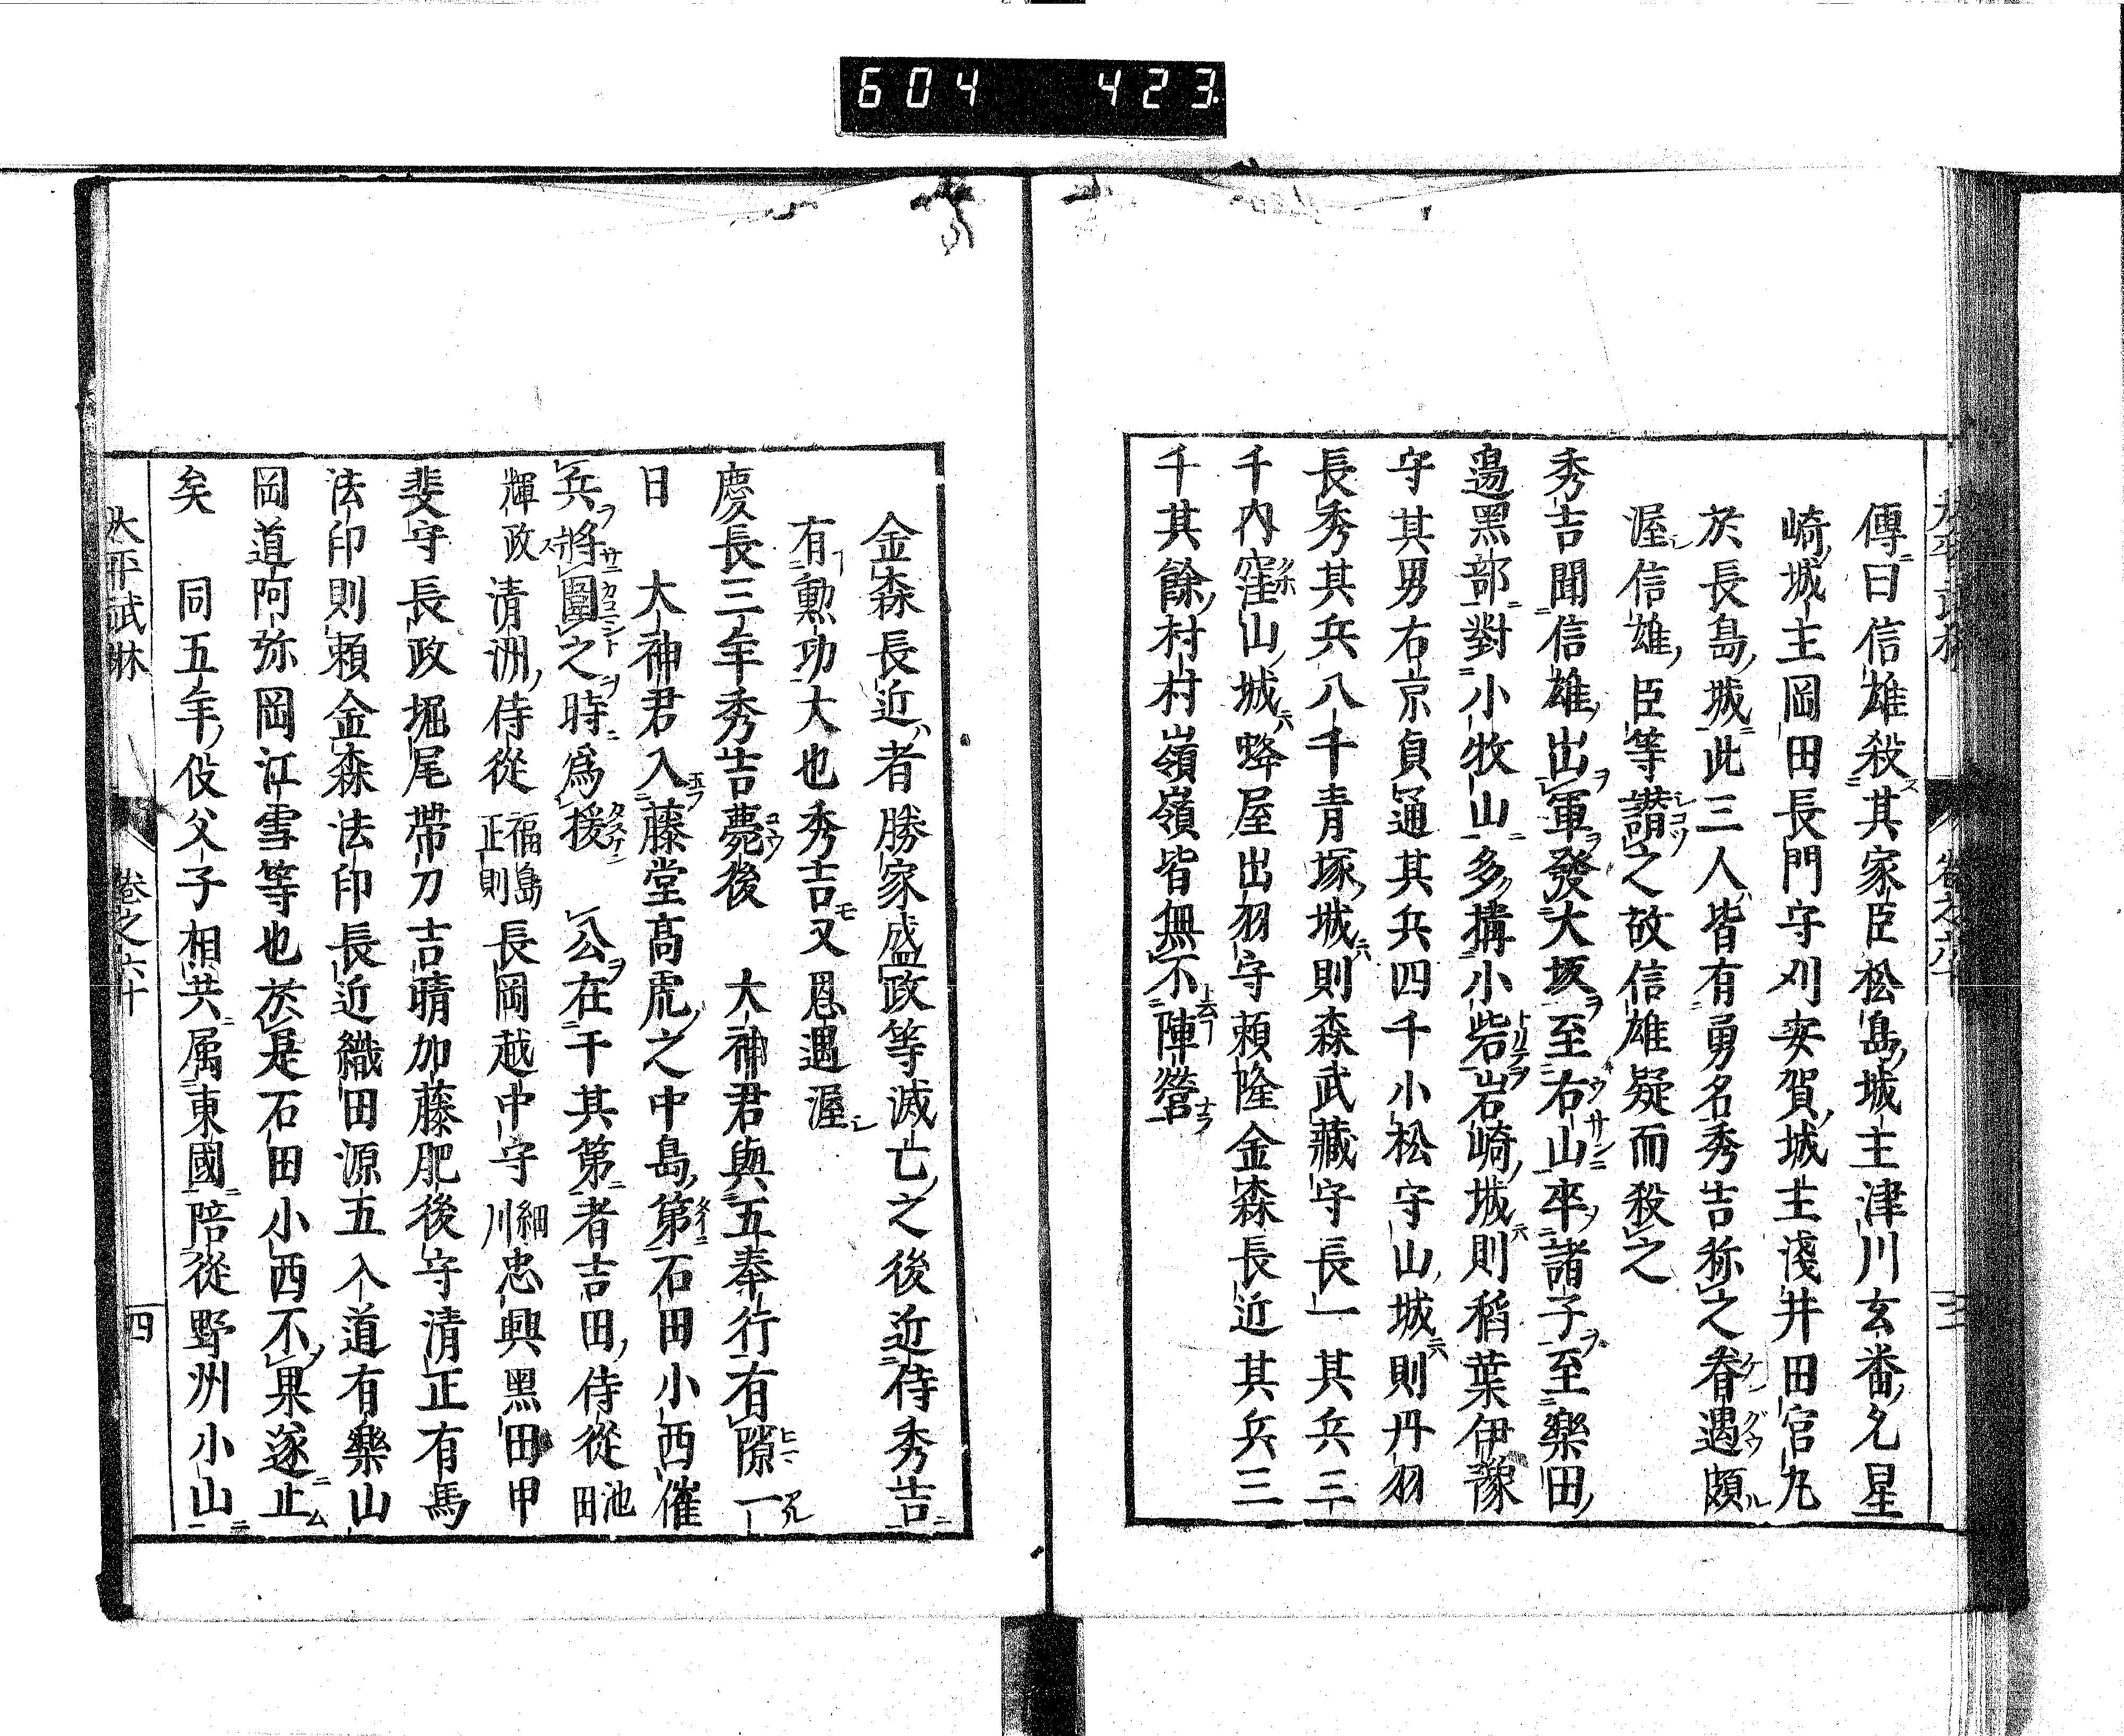 604 423
傳曰信雄殺其家臣松島城主津川玄蕃允星
崎城主岡田長門守刈安賀城主淺井田宮丸
於長島城此三人皆有勇名秀吉称之眷遇頗
渥信雄臣等讃之故信雄疑而殺之
秀吉聞信雄出軍發大坂至右山卒諸子至樂田
邊黑部對小牧山多構小砦岩崎城則稻葉伊豫
守其男右京貞通其兵四千小松守山城則丹羽
長秀其兵八千青塚城則森武藏守長一其兵三
千內窪山城蜂屋出羽守賴隆金森長近其兵三
千其餘村村嶺嶺皆無不陣營
金森長近者勝家盛政等滅亡之後近侍秀吉
有勲功大也秀吉又恩遇渥
慶長三年秀吉薨後 大神君與五奉行有隙一
日 大神君入藤堂高虎之中島第石田小西催
兵將圍之時爲援 公在于其第者吉田侍從池田
輝政清洲侍從福島正則長岡越中守細川忠興黑田甲
斐守長政堀尾帶刀吉晴加藤肥後守清正有馬
法印則賴金森法印長近織田源五入道有樂山
岡道阿弥岡江雪等也於是石田小西不果遂止
矣 同五年役父子相共属東國陪從野州小山
太平武林 卷之六十 四